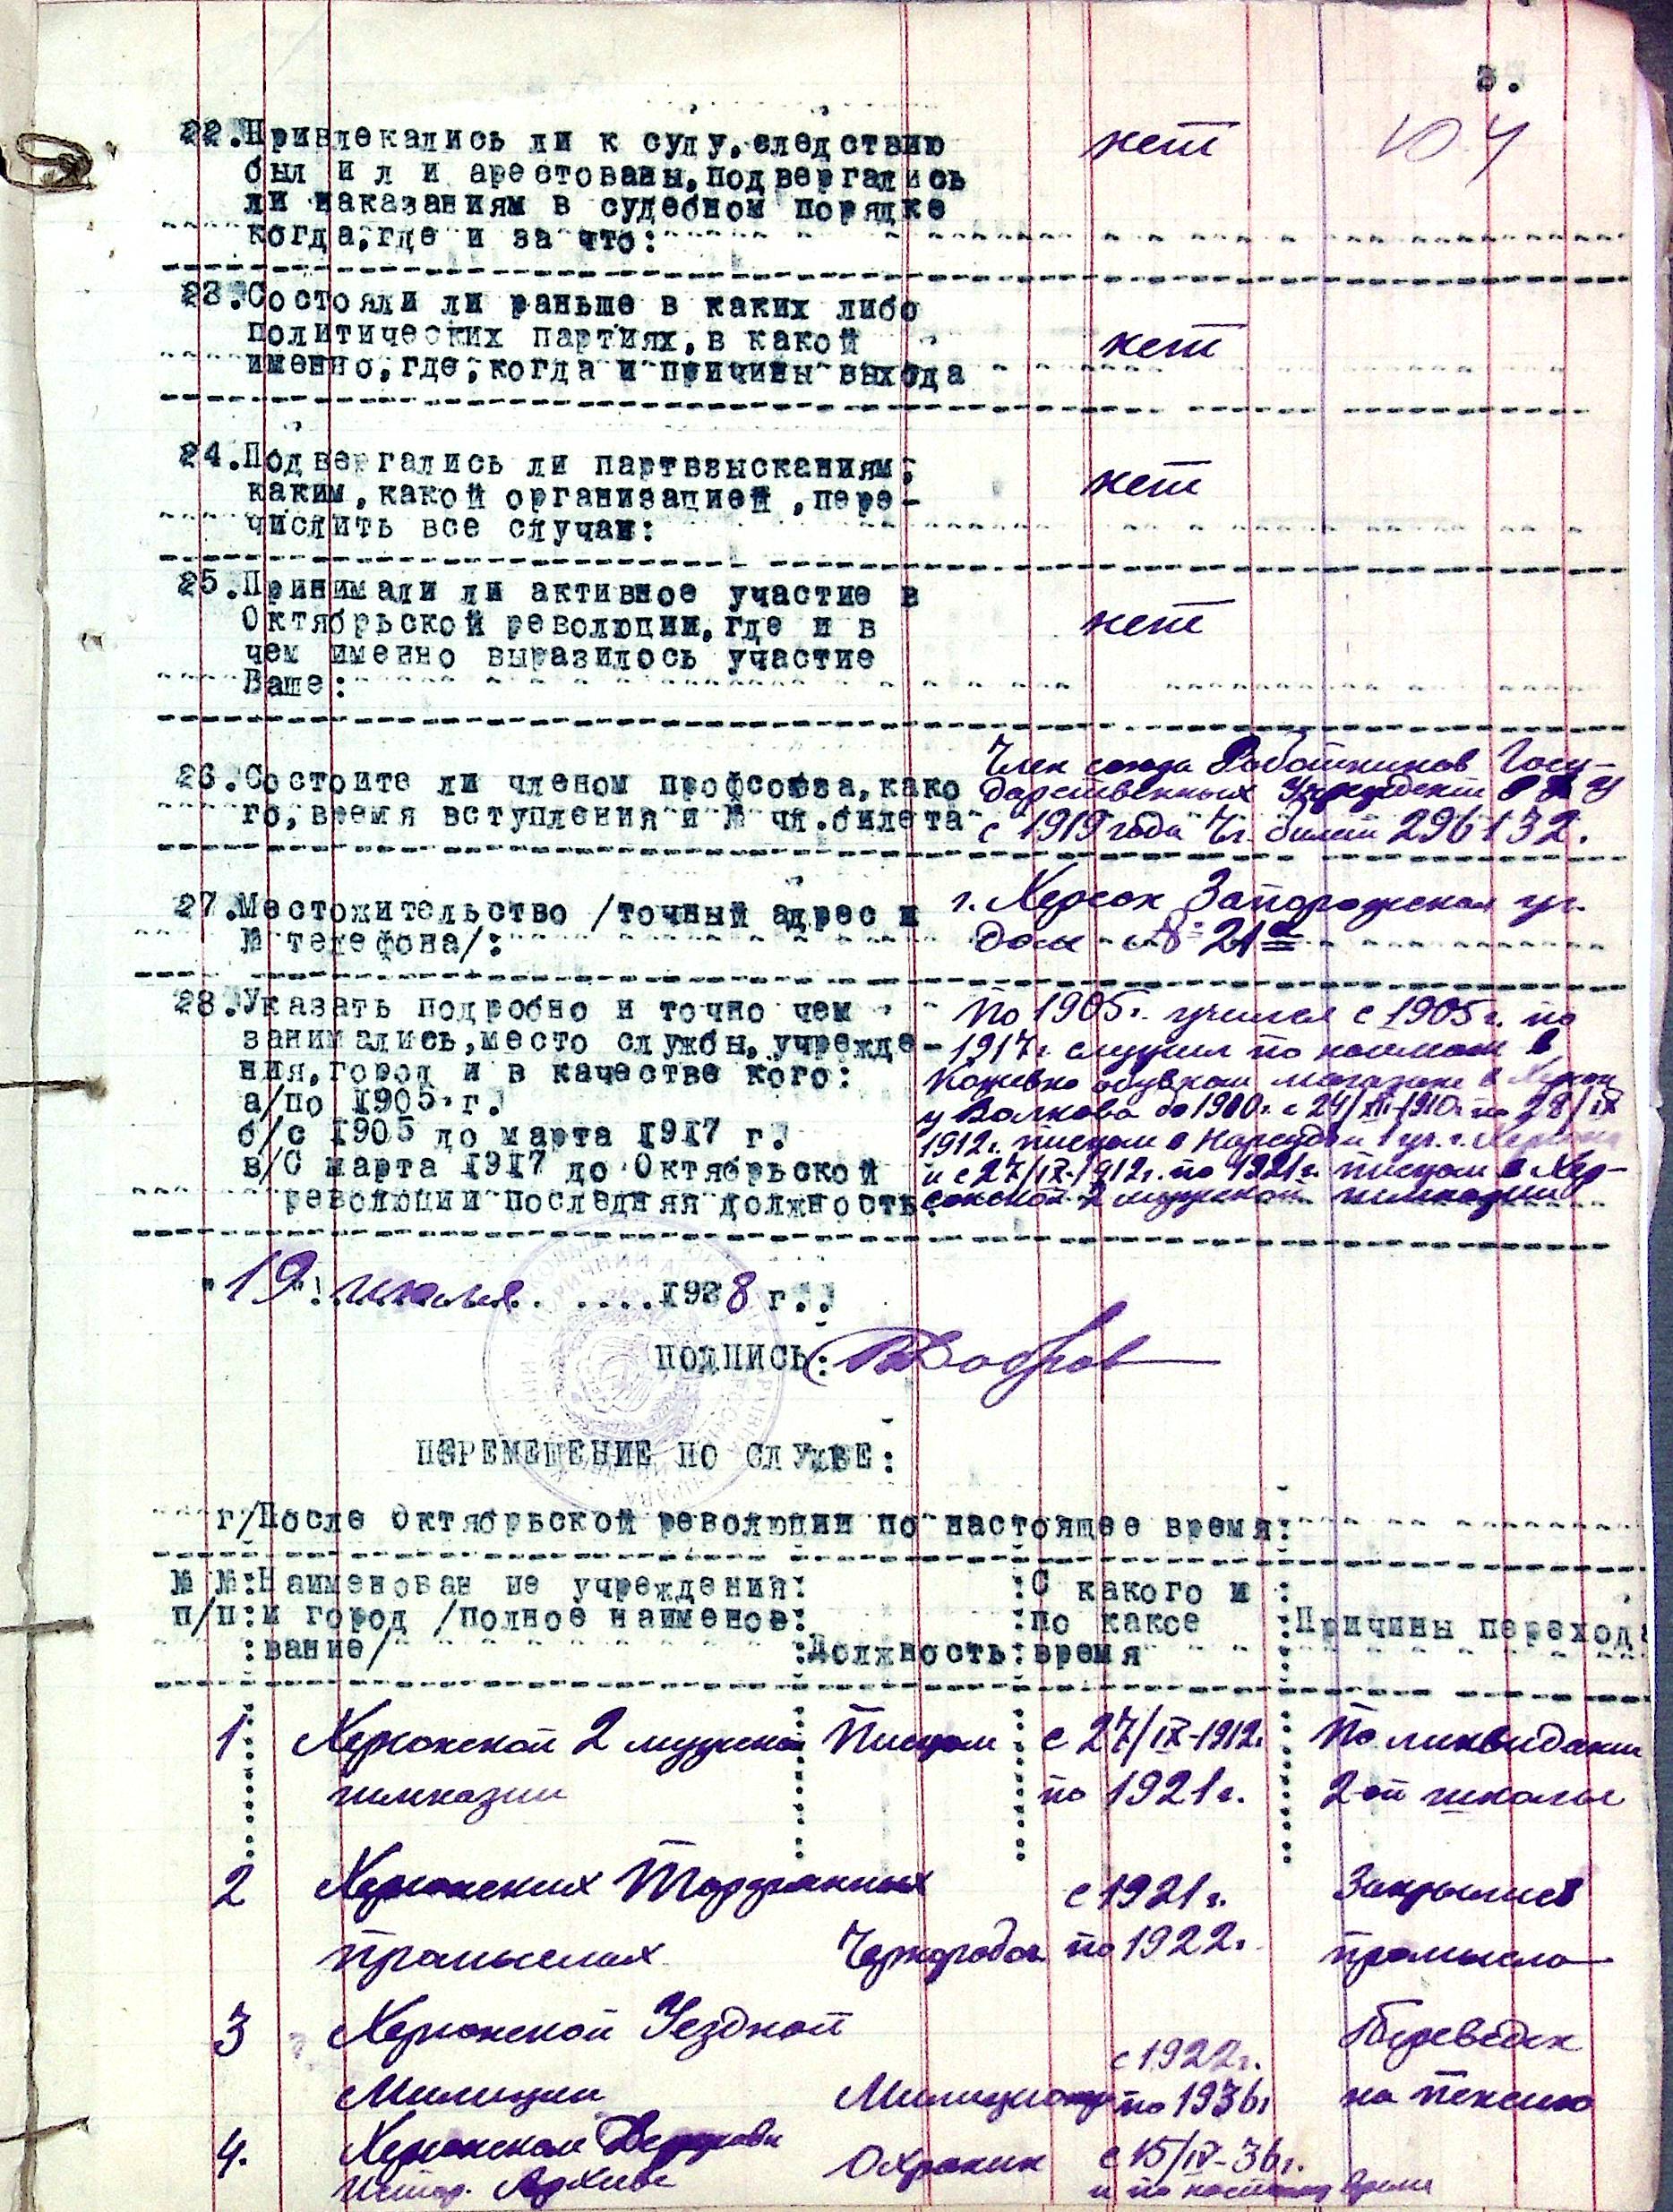 3.
22.Привлекались ли к суду,следствию
нет
был и л и арестованы,подвергались
ли наказаниям в судебном порядке
когда,где и за что:
23.Состояли ли раньше в каких либо
политических партиях,в какой
нет
именно,где,когда и причины выхода
24.Подвергались ли партвзысканиям,
каким,какой организацией,пере-
нет
числить все случаи:
25.Принимали ли активное участие в
Октябрьской революции,где и в
нет
чем именно выразилось участие
Ваше:
Член союза Работников Госу-
26.Состоите ли членом профсоюза,како
дарственных Учреждений
го,время вступления и № чл.билета
с 1919 года Чл. билет 296132.
27.Местожительство /точный адрес и
г. Херсон Запорожская ул.
№ телефона/:
дом № 21
28.Указать подробно и точно чем
По 1905г. учился с 1905г. по
занимались,место службы,учрежде-
1917г. служил по
ния,город и в качестве кого:
обувном магазине в Херсон
а/по 1905.г.
у Волкова до 1910г. с 24/ 1910г. по 28/IX
б/с 1905 до марта 1917 г.
1912г. писцом в 1 уч. г. Херсона
в/С марта 1917 до Октябрьской
и с 27/IX-1912г. по 1921г. писцом в Хер-
революции последняя должность:
сонской 2 мужской гимназии
"19" июля 1938 г.
ПОДПИСЬ: Добров
ПЕРЕМЕЩЕНИЕ ПО СЛУЖБЕ:
г/После Октябрьской революции по настоящее время:
№ №:Наименован ие учреждения: :С какого и :
п/п:и город /полное наименов: :по каксе :Причины переход
:вание/ :Должность:время
1 Херсонской 2 мужской Писцом с 27/IX-1912г. По ликвидации
гимназии по 1921г. 2-ой школы
2 Херсонских с 1921г. Закрылись
промыслах Чернорабоч. по 1922г. промысла
3 Херсонской Уездной Переведен
с 1922г.
Милиции Милиционер по 1936г на пенсию
4. Херсонском Охраник с 15/IV-36г.
Истор. Архиве и по настоящ время